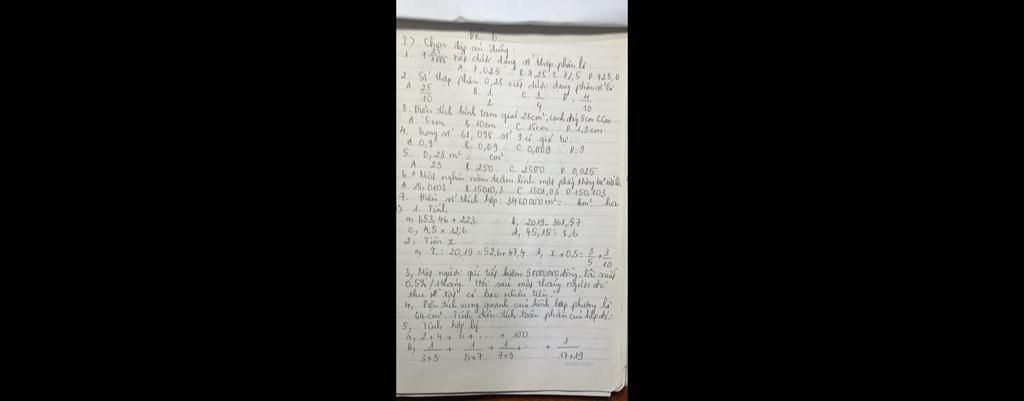 Đề 6
I) Chọn đáp án đúng.
1. 7 25/1000 viết dưới dạng số thập phân là
A. 7,025 B. 7,25 C. 72,5 D. 725,0
2. Số thập phân 0,25 viết dưới dạng phân số là
A. 25/10 B. 1/2 C. 1/4 D. 4/10
3. Diện tích hình tam giác 25cm², cạnh đáy 5cm. C.Cao
A. 5cm B. 10cm C. 15cm D. 1,5cm
4. Trong số 61,098 số 9 có giá trị
A. 0,9 B. 0,09 C. 0,009 D. 9
5. 0,25 m² = cm²
A. 25 B. 250 C. 2500 D. 0,025
6. Một nghìn năm trăm linh một phẩy không ba viết là
A. 15,0103 B. 15010,3 C. 1501,03 D. 150,103
7. Điền số thích hợp: 3460000m² = km² ha
1. Tính
a, 653,46 + 223 b, 2019 - 361,57
c, 4,5 x 12,6 d, 45,15 : 8,6
2, Tìm x
a, x : 20,19 = 52,6 + 47,4 b, x + 0,5 = 3/5 + 3/10
3, Một người gửi tiết kiệm 50000000 đồng, lãi suất
0,5% / 1 tháng. Hỏi sau một tháng người đó
thu về tất cả bao nhiêu tiền.
4, Diện tích xung quanh của hình lập phương là
64cm². Tính diện tích toàn phần của hlp đó.
5, Tính hợp lý
a, 2 + 4 + 6 + ... + 100
b, 1/3x5 + 1/5x7 + 1/7x9 + ... + 1/17x19